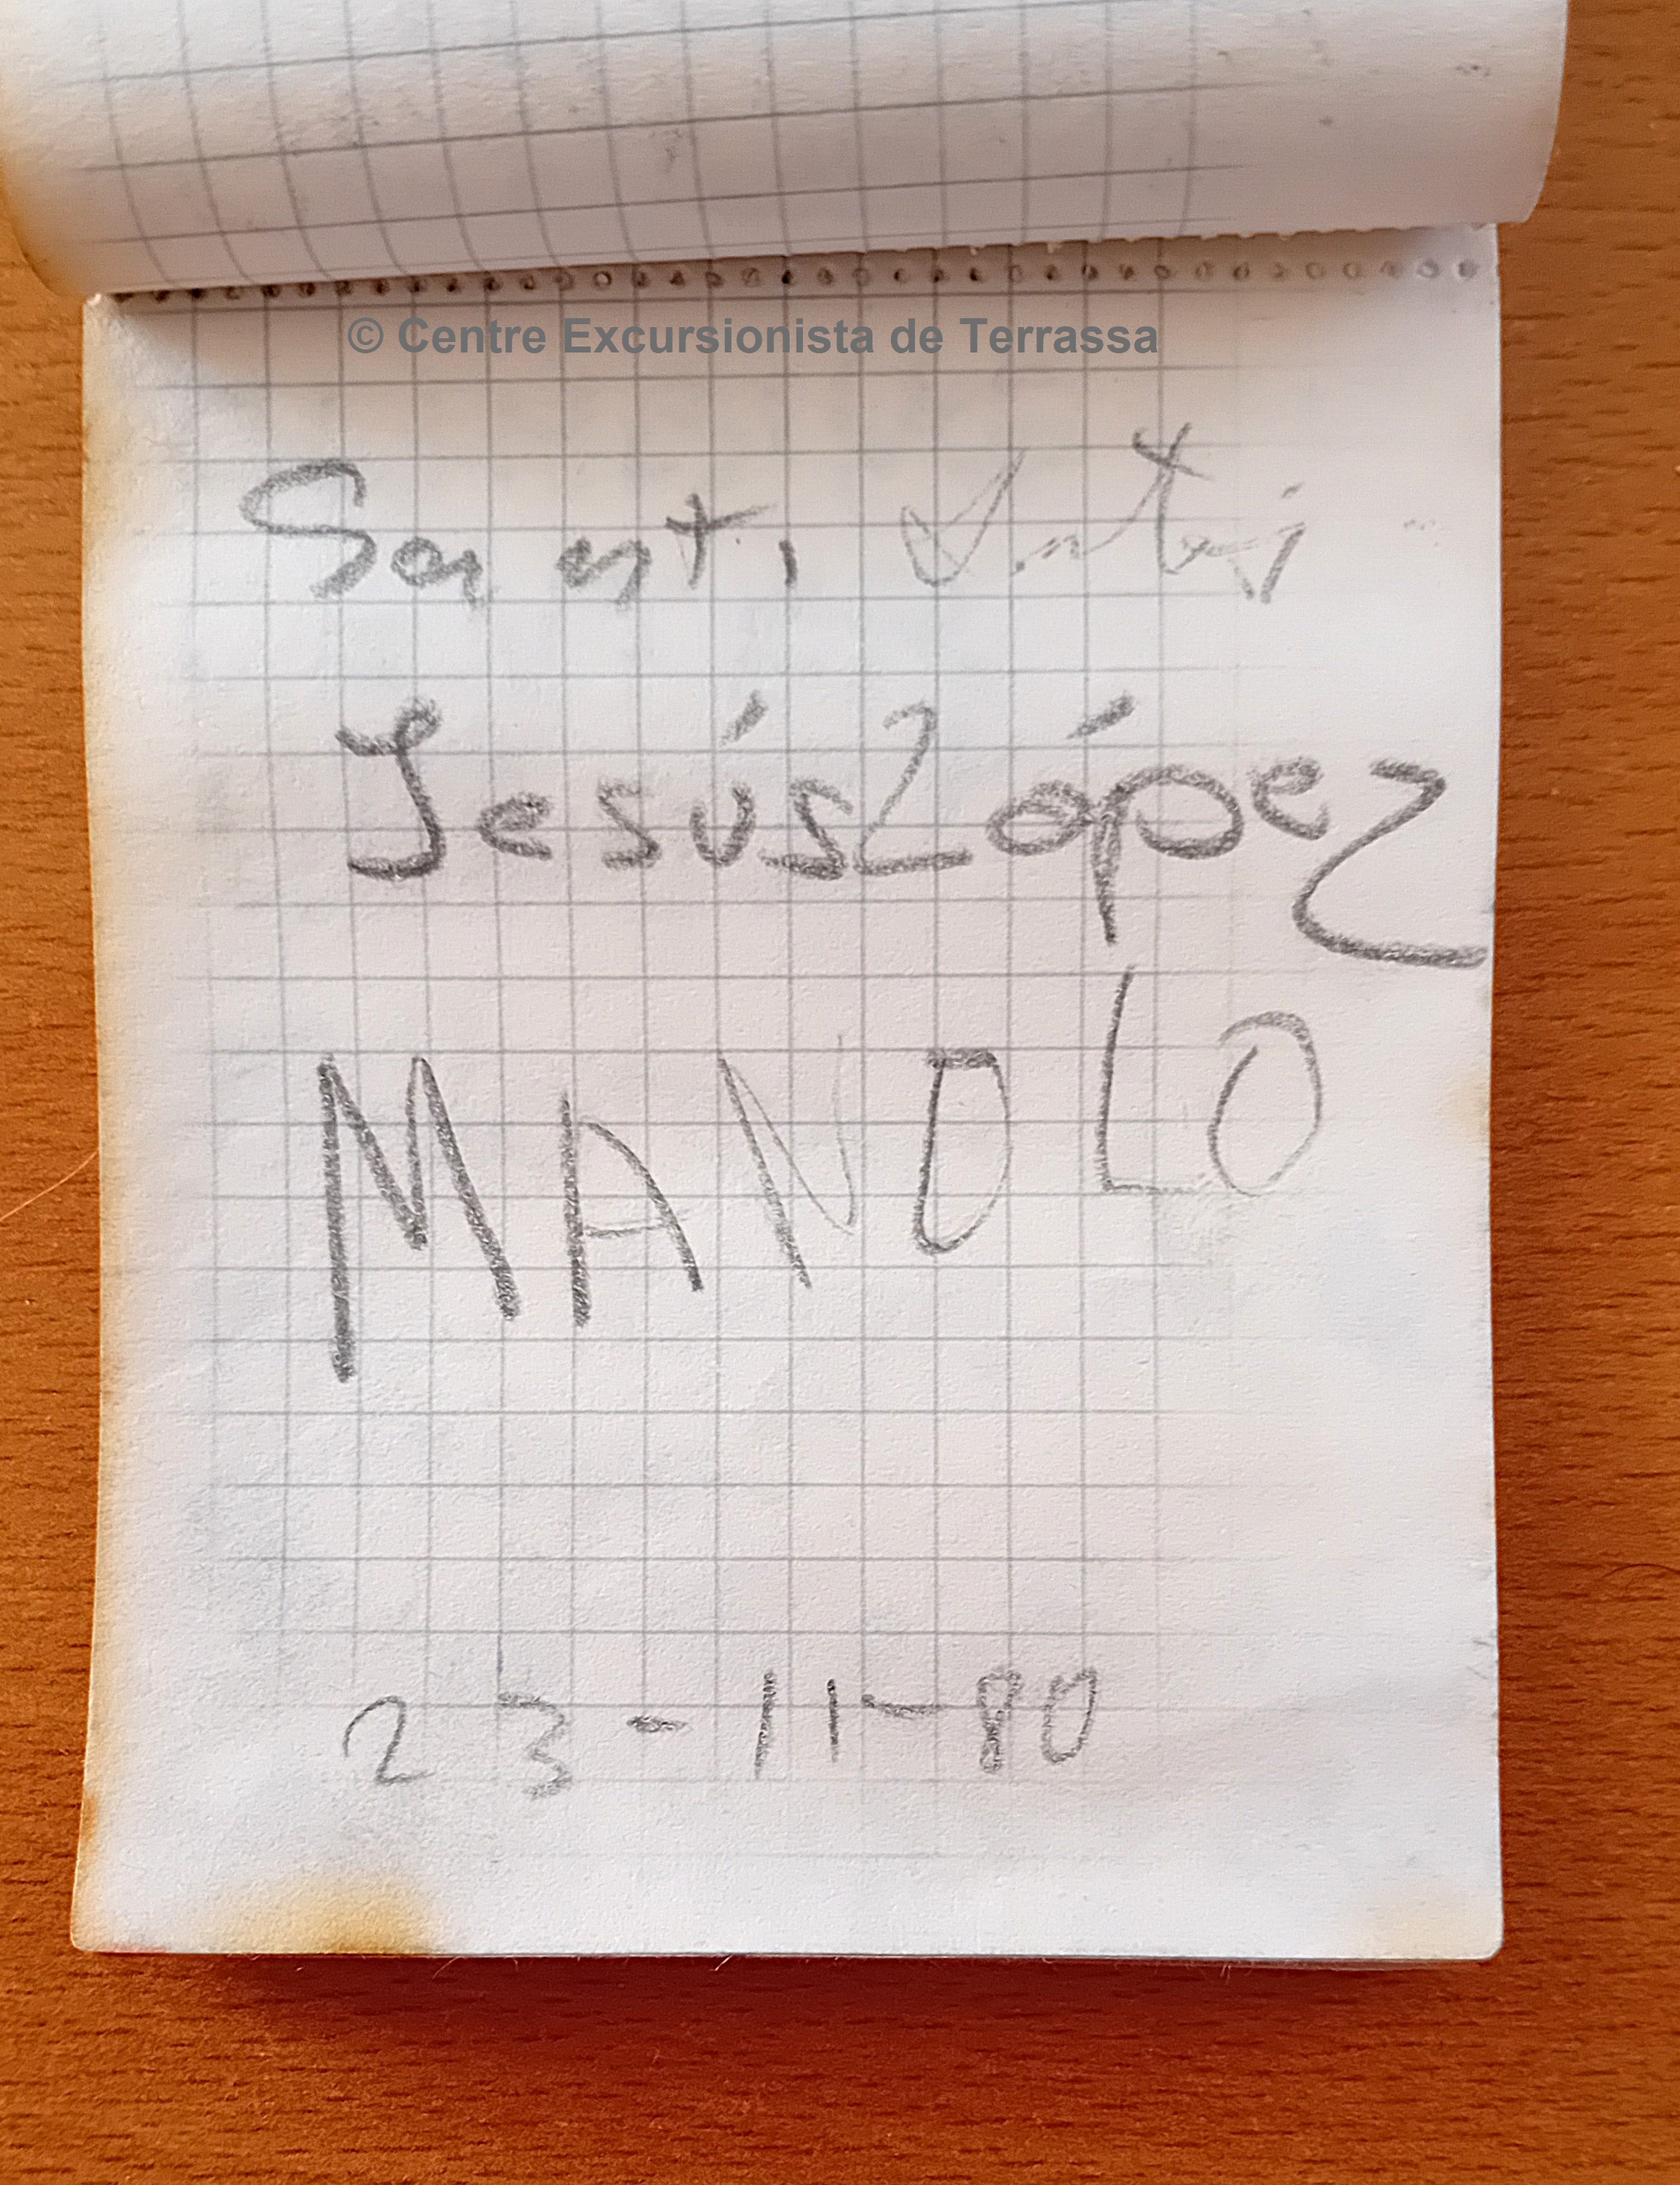 © Centre Excursionista de Terrassa
Jesús López
MANOLO
23-11-80